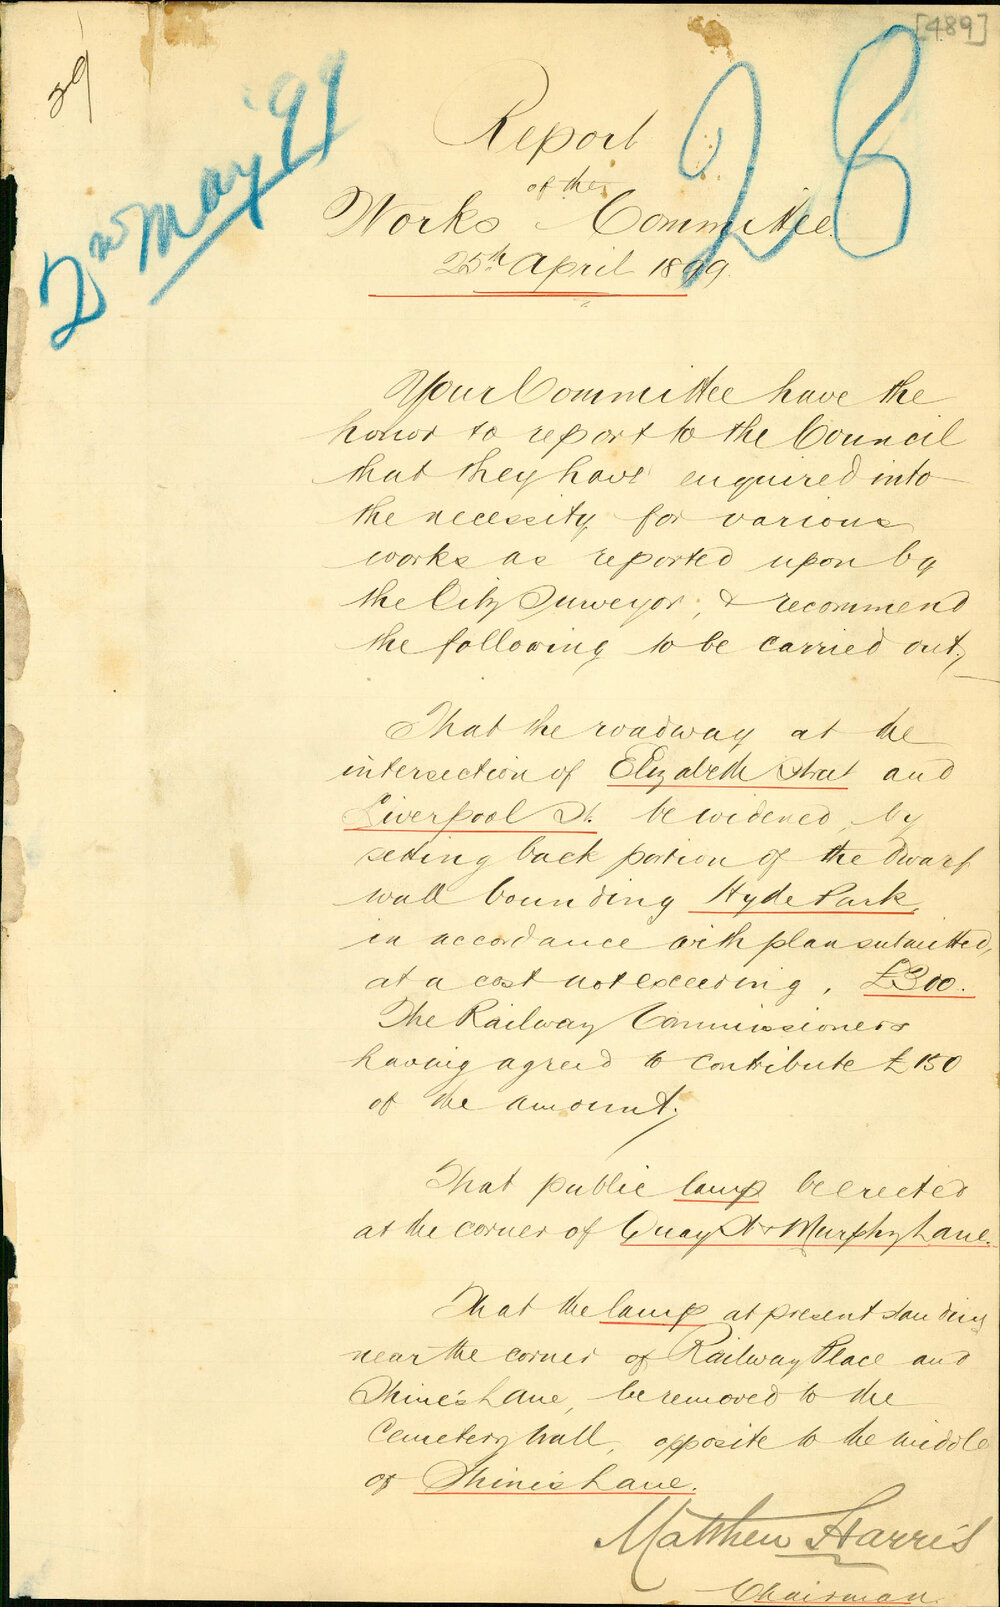 [489]
29
2nd May '99
28
Report
of the
Works Committee
25th April 1899.
Your Committee have the
honor to report to the Council
that they have enquired into
the necessity for various
works as reported upon by
the City Surveyor, & recommend
the following to be carried out,
That the roadway at the
intersection of Elizabeth Street and
Liverpool St. be widened, by
setting back portion of the dwarf
wall bounding Hyde Park,
in accordance with plan submitted,
at a cost not exceeding, £300.
The Railway Commissioners
having agreed to contribute £150
of the amount.
That public lamp be erected
at the corner of Quay St & Murphy Lane.
That the lamp at present standing
near the corner of Railway Place and
Shine's Lane, be removed to the
Cemetery Wall, opposite to the middle
of Shine's Lane.
Matthew Harris
Chairman.